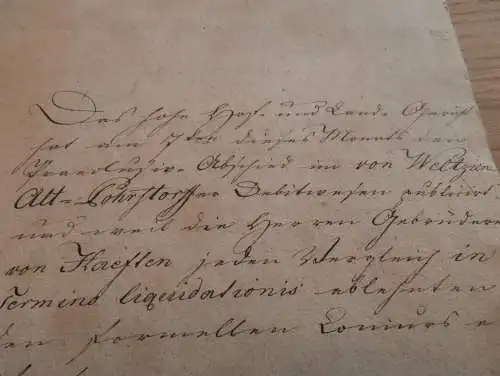 Das hohe Hof- und Land-Gericht
hat am 7ten dieses Monats den
Praeclusiv-Abschied im von Weltzien
Alt-Röhrstorffer Debitwesen publicirt
und weil die Herren Gebrüdere
von Haeften jeden Vergleich in
Termino liquidationis ablehnten
den formellen Concurs e